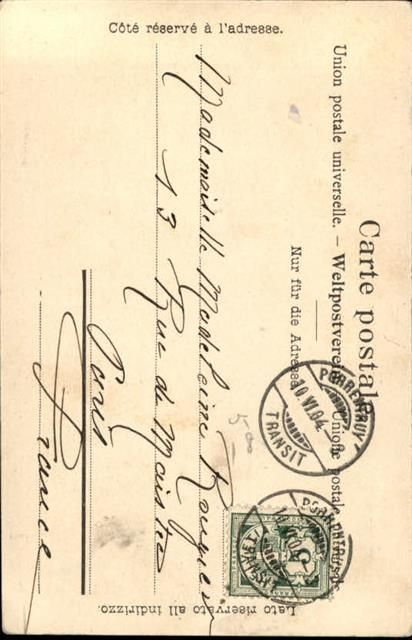 Côté réservé à l'adresse.
Carte postale
Union postale universelle. – Weltpostverein – Unione postale
Nur für die Adresse
Mademoiselle Madeleine
13 Rue de Maistre
Paris
France
500
PORRENTRUY
10.VI.04.
TRANSIT
PORRENTRUY
5
Lato riservato all indirizzo.